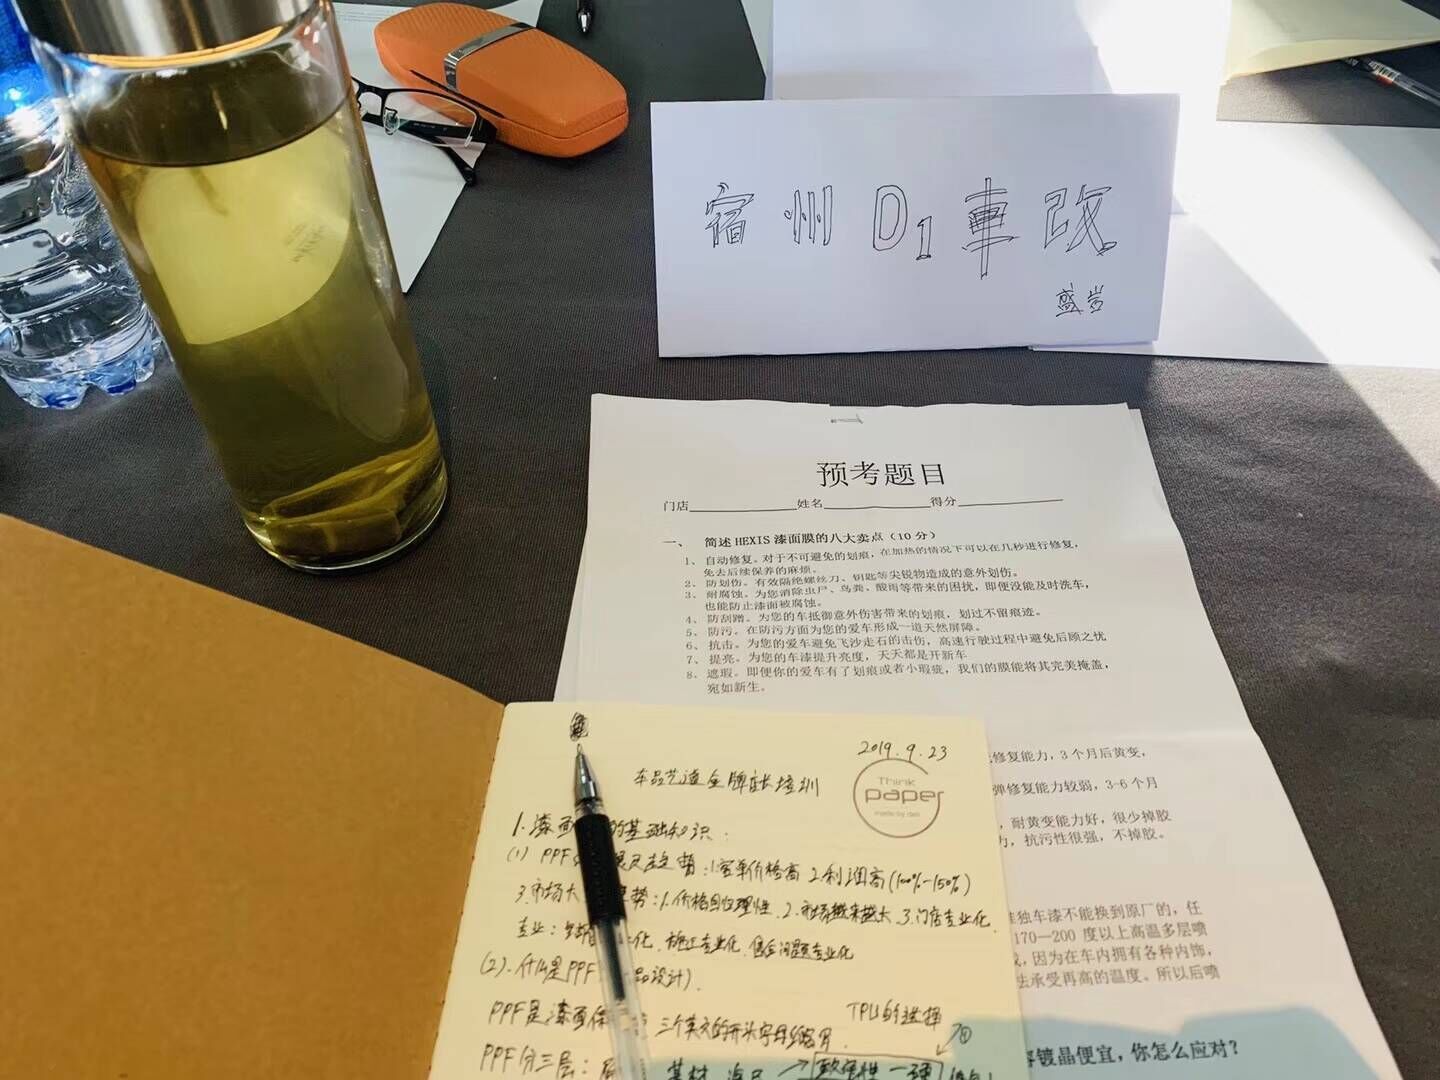 宿州 D1 車改
盛岩
预考题目
门店 姓名 得分
一、 简述 HEXIS 漆面膜的八大卖点（10 分）
1、自动修复。对于不可避免的划痕，在加热的情况下可以在几秒进行修复，
免去后续保养的麻烦。
2、防划伤。有效隔绝螺丝刀、钥匙等尖锐物造成的意外划伤。
3、耐腐蚀。为您消除虫尸、鸟粪、酸雨等带来的困扰，即便没能及时洗车，
也能防止漆面被腐蚀。
4、防刮蹭。为您的车抵御意外伤害带来的划痕，划过不留痕迹。
5、防污。在防污方面为您的爱车形成一道天然屏障。
6、抗击。为您的爱车避免飞沙走石的击伤，高速行驶过程中避免后顾之忧
7、提亮。为您的车漆提升亮度，天天都是开新车
8、遮瑕。即便你的爱车有了划痕或者小瑕疵，我们的膜能将其完美掩盖，
宛如新生。
修复能力，3 个月后黄变，
弹修复能力较弱，3-6 个月
，耐黄变能力好，很少掉胶
力，抗污性很强，不掉胶。
独车漆不能换到原厂的，任
170—200 度以上高温多层喷
，因为在车内拥有各种内饰，
法承受再高的温度。所以后喷
镀晶便宜，你怎么应对？
2019.9.23
Think
paper
车品艺道金牌店长培训
1.漆面 的基础知识：
(1) PPF 势：1.客单价格高 2.利润高(100%-150%)
3.市场大 势：1.价格回归理性 2.市场越来越大 3.门店专业化
专业： 化、施工专业化 售后问题专业化
(2).什么是PPF 品设计).
PPF是漆面保 三个英文的开头字母缩写. TPU的选择
PPF分三层： 基材